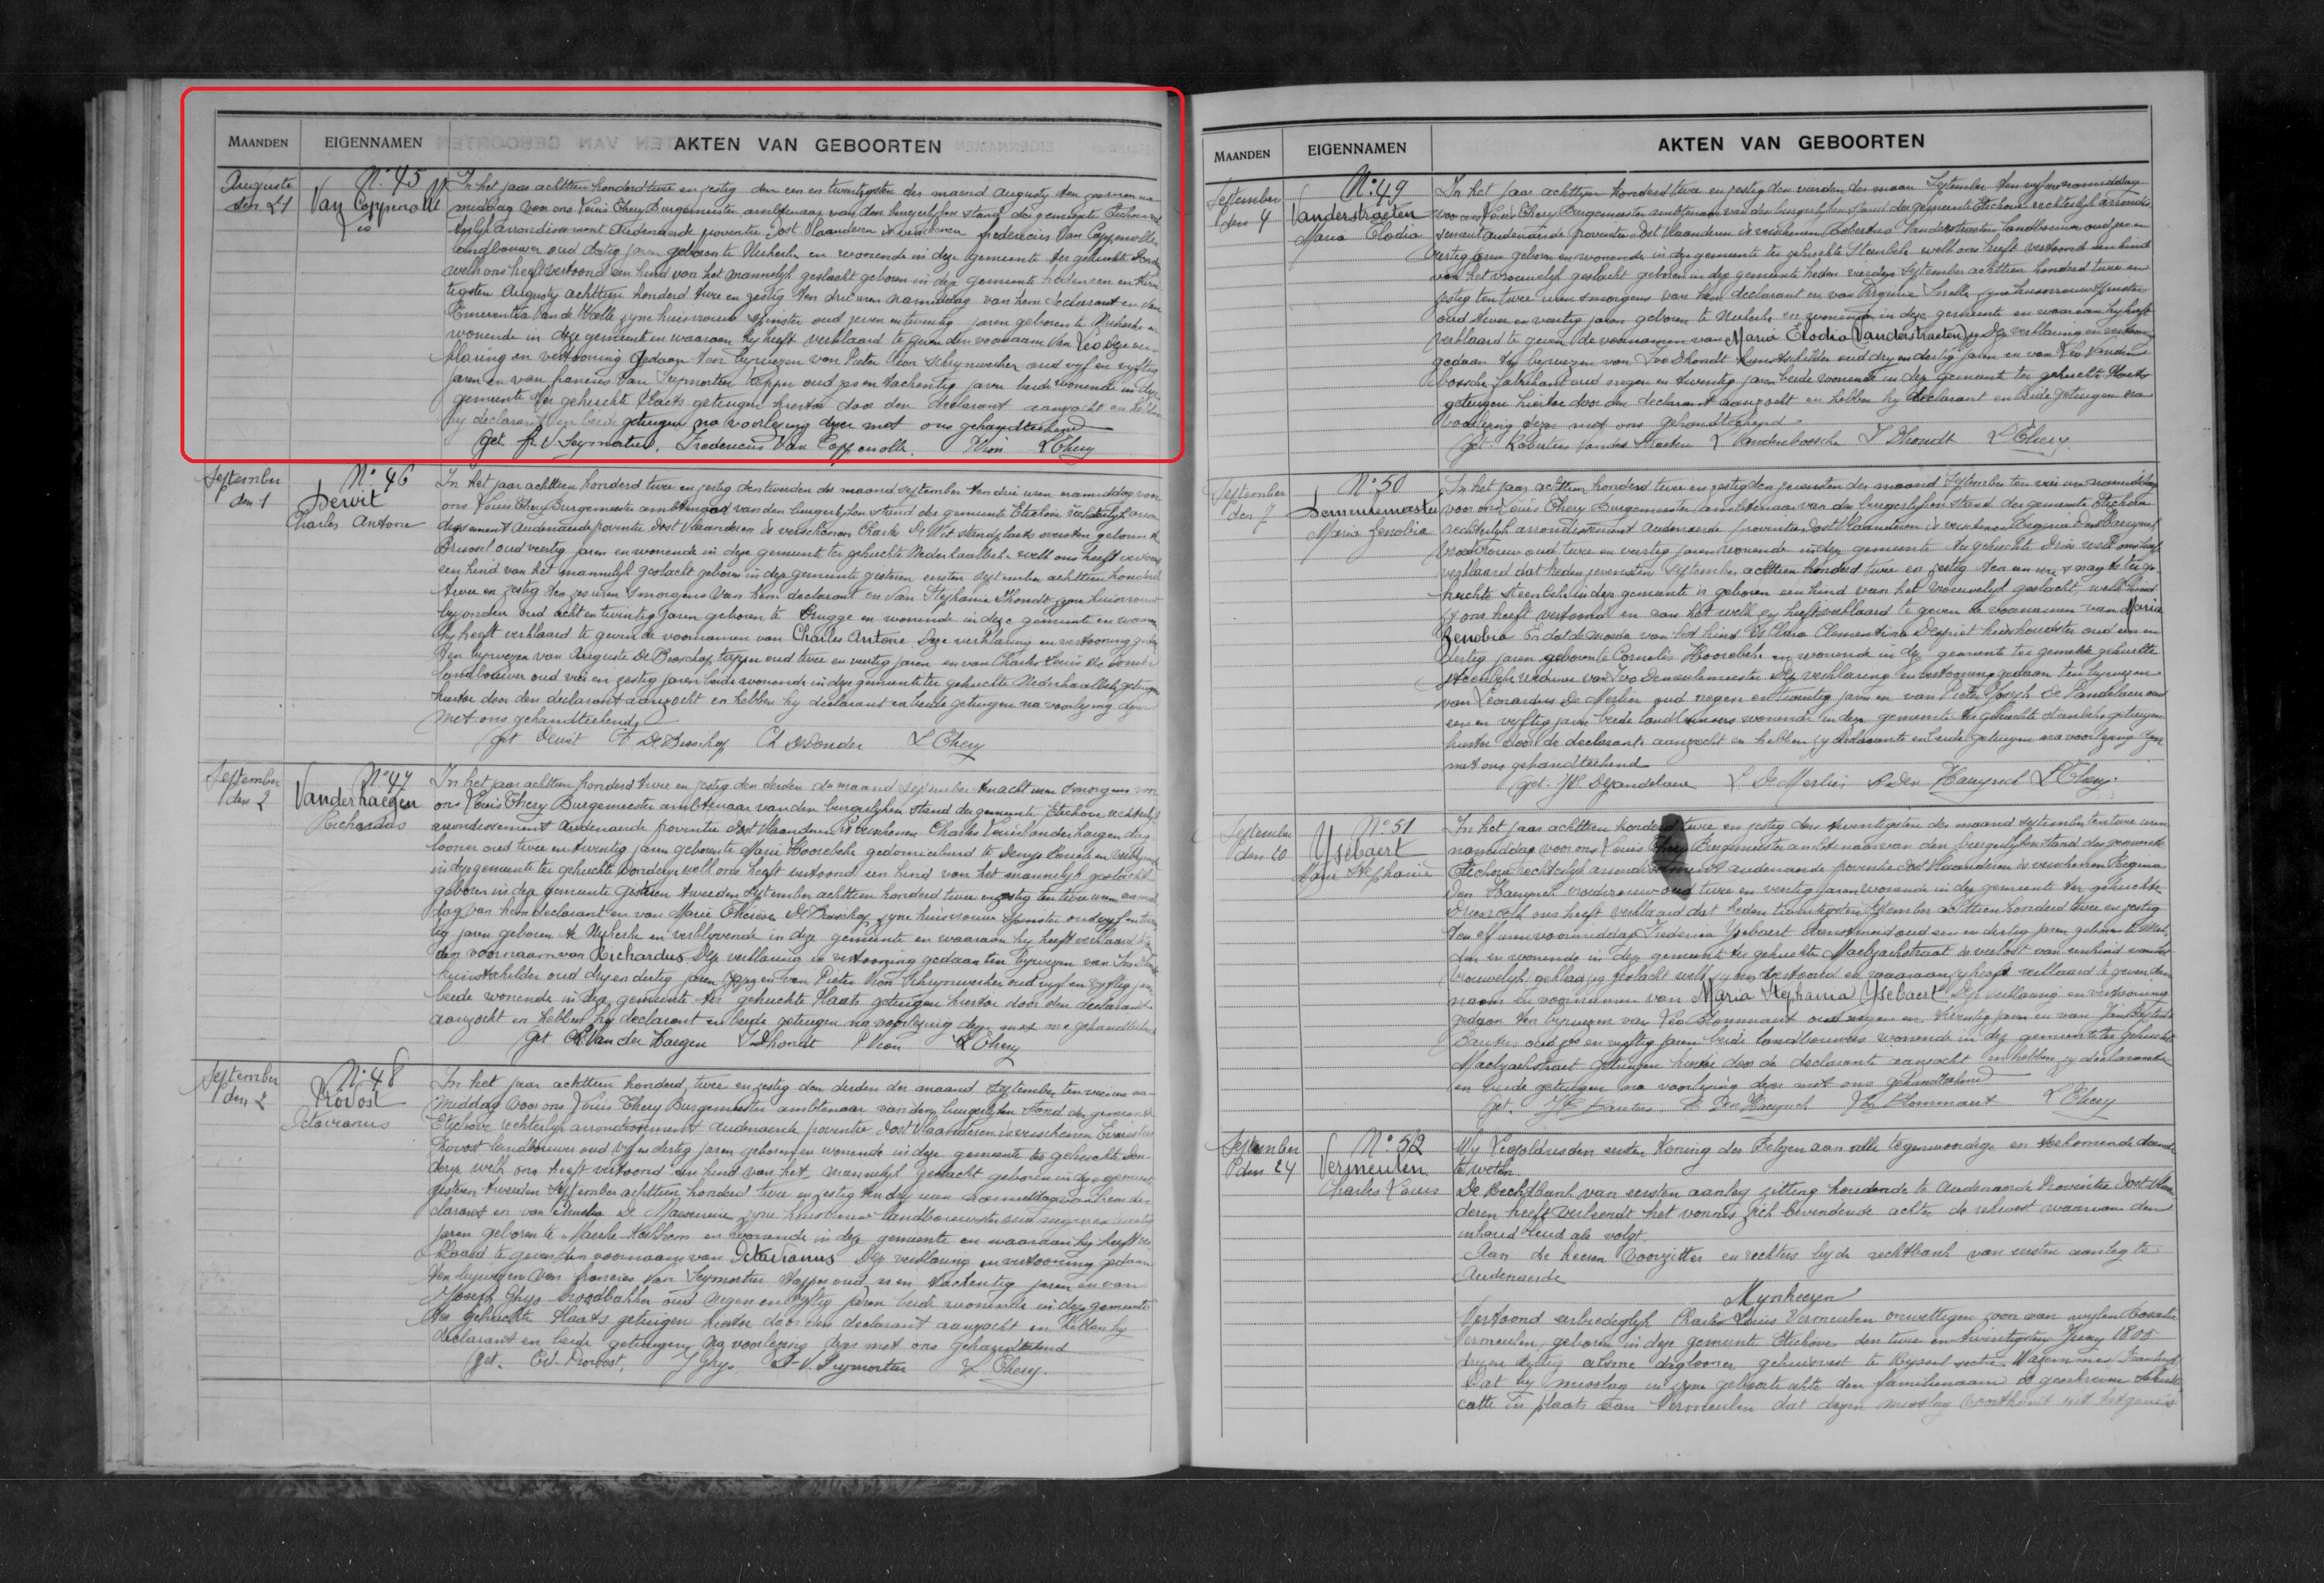 MAANDEN EIGENNAMEN AKTEN VAN GEBOORTEN
Augusti den 21
N° 45
Van Coppenolle
Leo
In het jaar achttien honderd twee en zestig den een en twintigsten der maand Augusty ten zes uren na
middag voor ons Louis Thery Burgemeester ambtenaar van den burgerlyken stand der gemeente Etichove
arrondissement Audenaarde provintie Oost Vlaanderen is verschenen Fredericus Van Coppenolle
landbouwer oud dertig jaren geboren te Nukerke en wonende in deze gemeente ter gehuchte
welk ons heeft vertoond een kind van het mannelyk geslacht geboren in deze gemeente heden een en twin
tigsten Augusty achttien honderd twee en zestig ten drie uren namiddag van hem declarant en van
Emerentia Van de Walle zyne huisvrouw spinster oud zeven en twintig jaren geboren te Nukerke en
wonende in deze gemeente en waaraan hy heeft verklaard te geven den voornaam van Leo deze ver
klaring en vertooning gedaan ten bywezen van Pieter Vion schrynwerker oud vyf en vyftig
jaren en van francies Van Seymortier tapper oud zes en tachentig jaren beide wonende in deze
gemeente ter gehuchte Plaats getuigen hiertoe door den declarant aanzocht en hebben
hy declarant en beide getuigen na voorlezing dezer met ons gehandteekend
get. fr. V. Seymortier. Fredericus Van Coppenolle. P Vion L Thery
September den 1
N° 46
Dewit
Charles Antone
In het jaar achttien honderd twee en zestig den tweeden der maand september ten drie uren namiddag voor
ons Louis Thery Burgemeester ambtenaar van den burgerlyken stand der gemeente Etichove rechterlyk arron
dissement Audenaarde provintie Oost Vlaanderen is verschenen Charles De Wit geboren te
Brussel oud veertig jaren en wonende in deze gemeente ter gehuchte Nederhaalbeke welk ons heeft vertoond
een kind van het mannelyk geslacht geboren in deze gemeente gisteren eersten september achttien honderd
twee en zestig ten zes uren smorgens van hem declarant en van Stephanie Dhondt zyne huisvrouw
byzonder oud acht en twintig jaren geboren te Brugge en wonende in deze gemeente en waaraan
hy heeft verklaard te geven de voornamen van Charles Antone. Deze verklaring en vertooning gedaan
ten bywezen van Auguste De Bisschop tapper oud twee en veertig jaren en van Charles Louis De Donder
landbouwer oud vier en zestig jaren beide wonende in deze gemeente ter gehuchte Nederhaalbeke getuigen
hiertoe door den declarant aanzocht en hebben hy declarant en beide getuigen na voorlezing dezer
met ons gehandteekend
get Dewit De Bisschop Ch DeDonder L Thery
September den 2
N° 47
Vanderhaegen
Richardus
In het jaar achttien honderd twee en zestig den derden der maand september ten acht uren smorgens voor
ons Louis Thery Burgemeester ambtenaar van den burgerlyken stand der gemeente Etichove rechterlyk
arrondissement Audenaarde provintie Oost Vlaanderen is verschenen Charles Louis Vanderhaegen dag
looner oud twee en twintig jaren geboren te Marie Hoorebeke gedomicilieerd te en verblyvende
in deze gemeente ter gehuchte Donderye welk ons heeft vertoond een kind van het mannelyk geslacht
geboren in deze gemeente gisteren tweeden september achttien honderd twee en zestig ten twee uren namid
dag van hem declarant en van Marie Thérèse De Bisschop zyne huisvrouw spinster oud vyf en twin
tig jaren geboren te Nukerke en verblyvende in deze gemeente en waaraan hy heeft verklaard te geven
den voornaam van Richardus Deze verklaring en vertooning gedaan ten bywezen van Ivo Dhondt
kunstschilder oud dry en dertig jaren en van Pieter Vion schrynwerker oud vyf en vyftig jaren
beide wonende in deze gemeente ter gehuchte Plaats getuigen hiertoe door den declarant
aanzocht en hebben hy declarant en beide getuigen na voorlezing dezer met ons gehandteekend
get Ch Van der Haegen I Dhondt P Vion L Thery
September den 2
N° 48
Provost
Octavianus
In het jaar achttien honderd twee en zestig den derden der maand september ten vier uren na
middag voor ons Louis Thery Burgemeester ambtenaar van den burgerlyken stand der gemeente
Etichove rechterlyk arrondissement Audenaarde provintie Oost Vlaanderen is verschenen Evaristus
Provost landbouwer oud vyf en dertig jaren geboren en wonende in deze gemeente ter gehuchte Don
derye welk ons heeft vertoond een kind van het mannelyk geslacht geboren in deze gemeente
gisteren tweeden september achttien honderd twee en zestig ten dry uren namiddag van hem de
clarant en van De zyne huisvrouw landbouwster oud
jaren geboren te Maerke Kerkhem en wonende in deze gemeente en waaraan hy heeft ver
klaard te geven den voornaam van Octavianus Deze verklaring en vertooning gedaan
ten bywezen van francies Van Seymortier tapper oud zes en tachentig jaren en van
Joseph Ghys broodbakker oud negen en vyftig jaren beide wonende in deze gemeente
ter gehuchte Plaats getuigen hiertoe door den declarant aanzocht en hebben hy
declarant en beide getuigen na voorlezing dezer met ons gehandteekend
get. Ev. Provost, J Ghys. Fr. V. Seymortier L Thery.
MAANDEN EIGENNAMEN AKTEN VAN GEBOORTEN
September den 4
N° 49
Vanderstraeten
Maria Elodia
In het jaar achttien honderd twee en zestig den vierden der maan September ten vyf uren namiddag
voor ons Louis Thery Burgemeester ambtenaar van den burgerlyken stand der gemeente Etichove rechterlyk arrondis
sement Audenaarde provintie Oost Vlaanderen is verschenen Robertus Vanderstraeten landbouwer oud zes en
veertig jaren geboren en wonende in deze gemeente ter gehuchte Steenbeke welk ons heeft vertoond een kind
van het vrouwelyk geslacht geboren in deze gemeente heden vierden September achttien honderd twee en
zestig ten twee uren smorgens van hem declarant en van Virginie zyne huisvrouw spinster
oud twee en veertig jaren geboren te Nukerke en wonende in deze gemeente en waaraan hy heeft
verklaard te geven de voornamen van Maria Elodia (Vanderstraeten) Deze verklaring en vertooning
gedaan ten bywezen van Ivo Dhondt kunstschilder oud dry en dertig jaren en van Leo Vanden
bossche fabrikant oud negen en twintig jaren beide wonende in deze gemeente ter gehuchte Plaats
getuigen hiertoe door den declarant aanzocht en hebben hy declarant en beide getuigen na
voorlezing dezer met ons gehandteekend.
get. Robertus Vander Straeten L Vandenbossche I Dhondt L Thery.
September den 7
N° 50
Demeulemeester
Maria Zenobia
In het jaar achttien honderd twee en zestig den zevensten der maand September ten vier uren namiddag
voor ons Louis Thery Burgemeester ambtenaar van den burgerlyken stand der gemeente Etichove
rechterlyk arrondissement Audenaarde provintie Oost Vlaanderen is verschenen Regina Den Haerynck
vroedvrouw oud twee en veertig jaren wonende in deze gemeente ter gehuchte Dries welk ons heeft
verklaard dat heden zevensten September achttien honderd twee en zestig ten een ure smorgens ter ge
huchte Steenbeke in deze gemeente is geboren een kind van het vrouwelyk geslacht, welk kind
zy ons heeft vertoond en aan het welk zy heeft verklaard te geven de voornamen van Maria
Zenobia En dat de moeder van het kind is Clementina Despriet huishoudster oud een en
dertig jaren geboren te Cornelis Hoorebeke en wonende in deze gemeente ter gemelde gehuchte
Steenbeke weduwe van Ivo Demeulemeester Deze verklaring en vertooning gedaan ten bywezen
van Leonardus De Merlier oud negen en twintig jaren en van Pieter Joseph De Pandelaere oud
een en vyftig jaren beide landbouwers wonende in deze gemeente ter gehuchte Steenbeke getuigen
hiertoe door de declarante aanzocht en hebben zy declarante en beide getuigen na voorlezing dezer
met ons gehandteekend
get. Depandelaere L. De Merlier R Den Haerynck L Thery.
September den 20
N° 51
Ysebaert
Marie Stephanie
In het jaar achttien honderd twee en zestig den twintigsten der maand september ten twee uren
namiddag voor ons Louis Thery Burgemeester ambtenaar van den burgerlyken stand der gemeente
Etichove rechterlyk arrondissement Audenaarde provintie Oost Vlaanderen is verschenen Regina
Den Haerynck vroedvrouw oud twee en veertig jaren wonende in deze gemeente ter gehuchte
Dries welk ons heeft verklaard dat heden twintigsten September achttien honderd twee en zestig
ten elf uren voormiddag Frederica Ysebaert oud een en dertig jaren geboren te
en wonende in deze gemeente ter gehuchte Maelzackstraat is verlost van een kind van het
vrouwelyk geslacht welk zy ons vertoond en waaraan zy heeft verklaard te geven den
naam en voornamen van Maria Stephania Ysebaert. Deze verklaring en vertooning
gedaan ten bywezen van Leo Blommaert oud negen en twintig jaren en van Jean Baptiste
Bauters oud zes en vyftig jaren beide landbouwers wonende in deze gemeente ter gehuchte
Maelzackstraet getuigen hiertoe door de declarante aanzocht en hebben zy declarante
en beide getuigen na voorlezing dezer met ons gehandteekend
get. JB Bauters. R Den Haerynck Leo Blommaert L Thery
September den 24
N° 52
Vermeulen
Charles Louis
Wy Leopoldus den eersten Koning der Belgen aan alle tegenwoordige en toekomende doende
te weten
De Rechtbank van eersten aanleg zitting houdende te Audenaarde Provintie Oost Vlaan
deren heeft verleend het vonnis zich bevindende achter de rekwest waarvan den
inhoud luid als volgt.
Aan de heeren Voorzitter en rechters by de rechtbank van eersten aanleg te
Audenaarde
Mynheeren
Vertoond eerbiediglyk Charles Louis Vermeulen onwettigen zoon van wylen Rosalie
Vermeulen, geboren in deze gemeente Etichove den twee en twintigsten Juny 1805
daglooner gehuisvest te Ryssel sectie Wazemmes Frankryk
Dat by misslag in zyne geboorte akte den familienaam is geschreven
catte in plaats van Vermeulen dat dezen misslag voortkomt uit hetgene